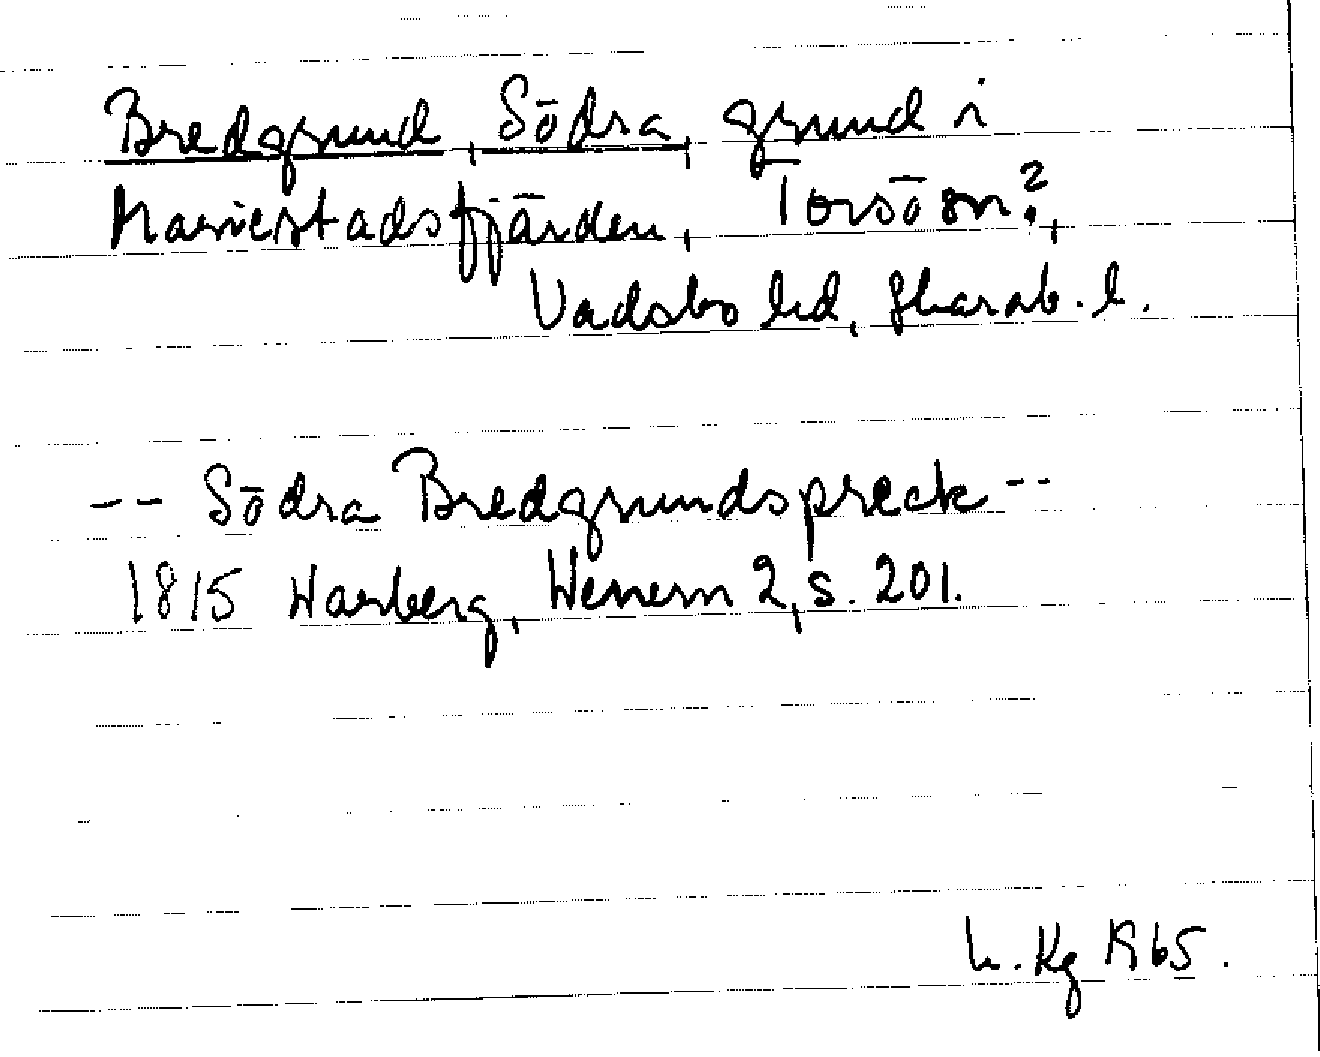 Bredgrund, Södra, grund i
Mariestadsfjärden, Torsö sn?,
Vadsbo hd, Skarab. l.
-- Södra Bredgrundspreck --
1815 Warberg, Wenern 2, s. 201.
h. Kg 1965.